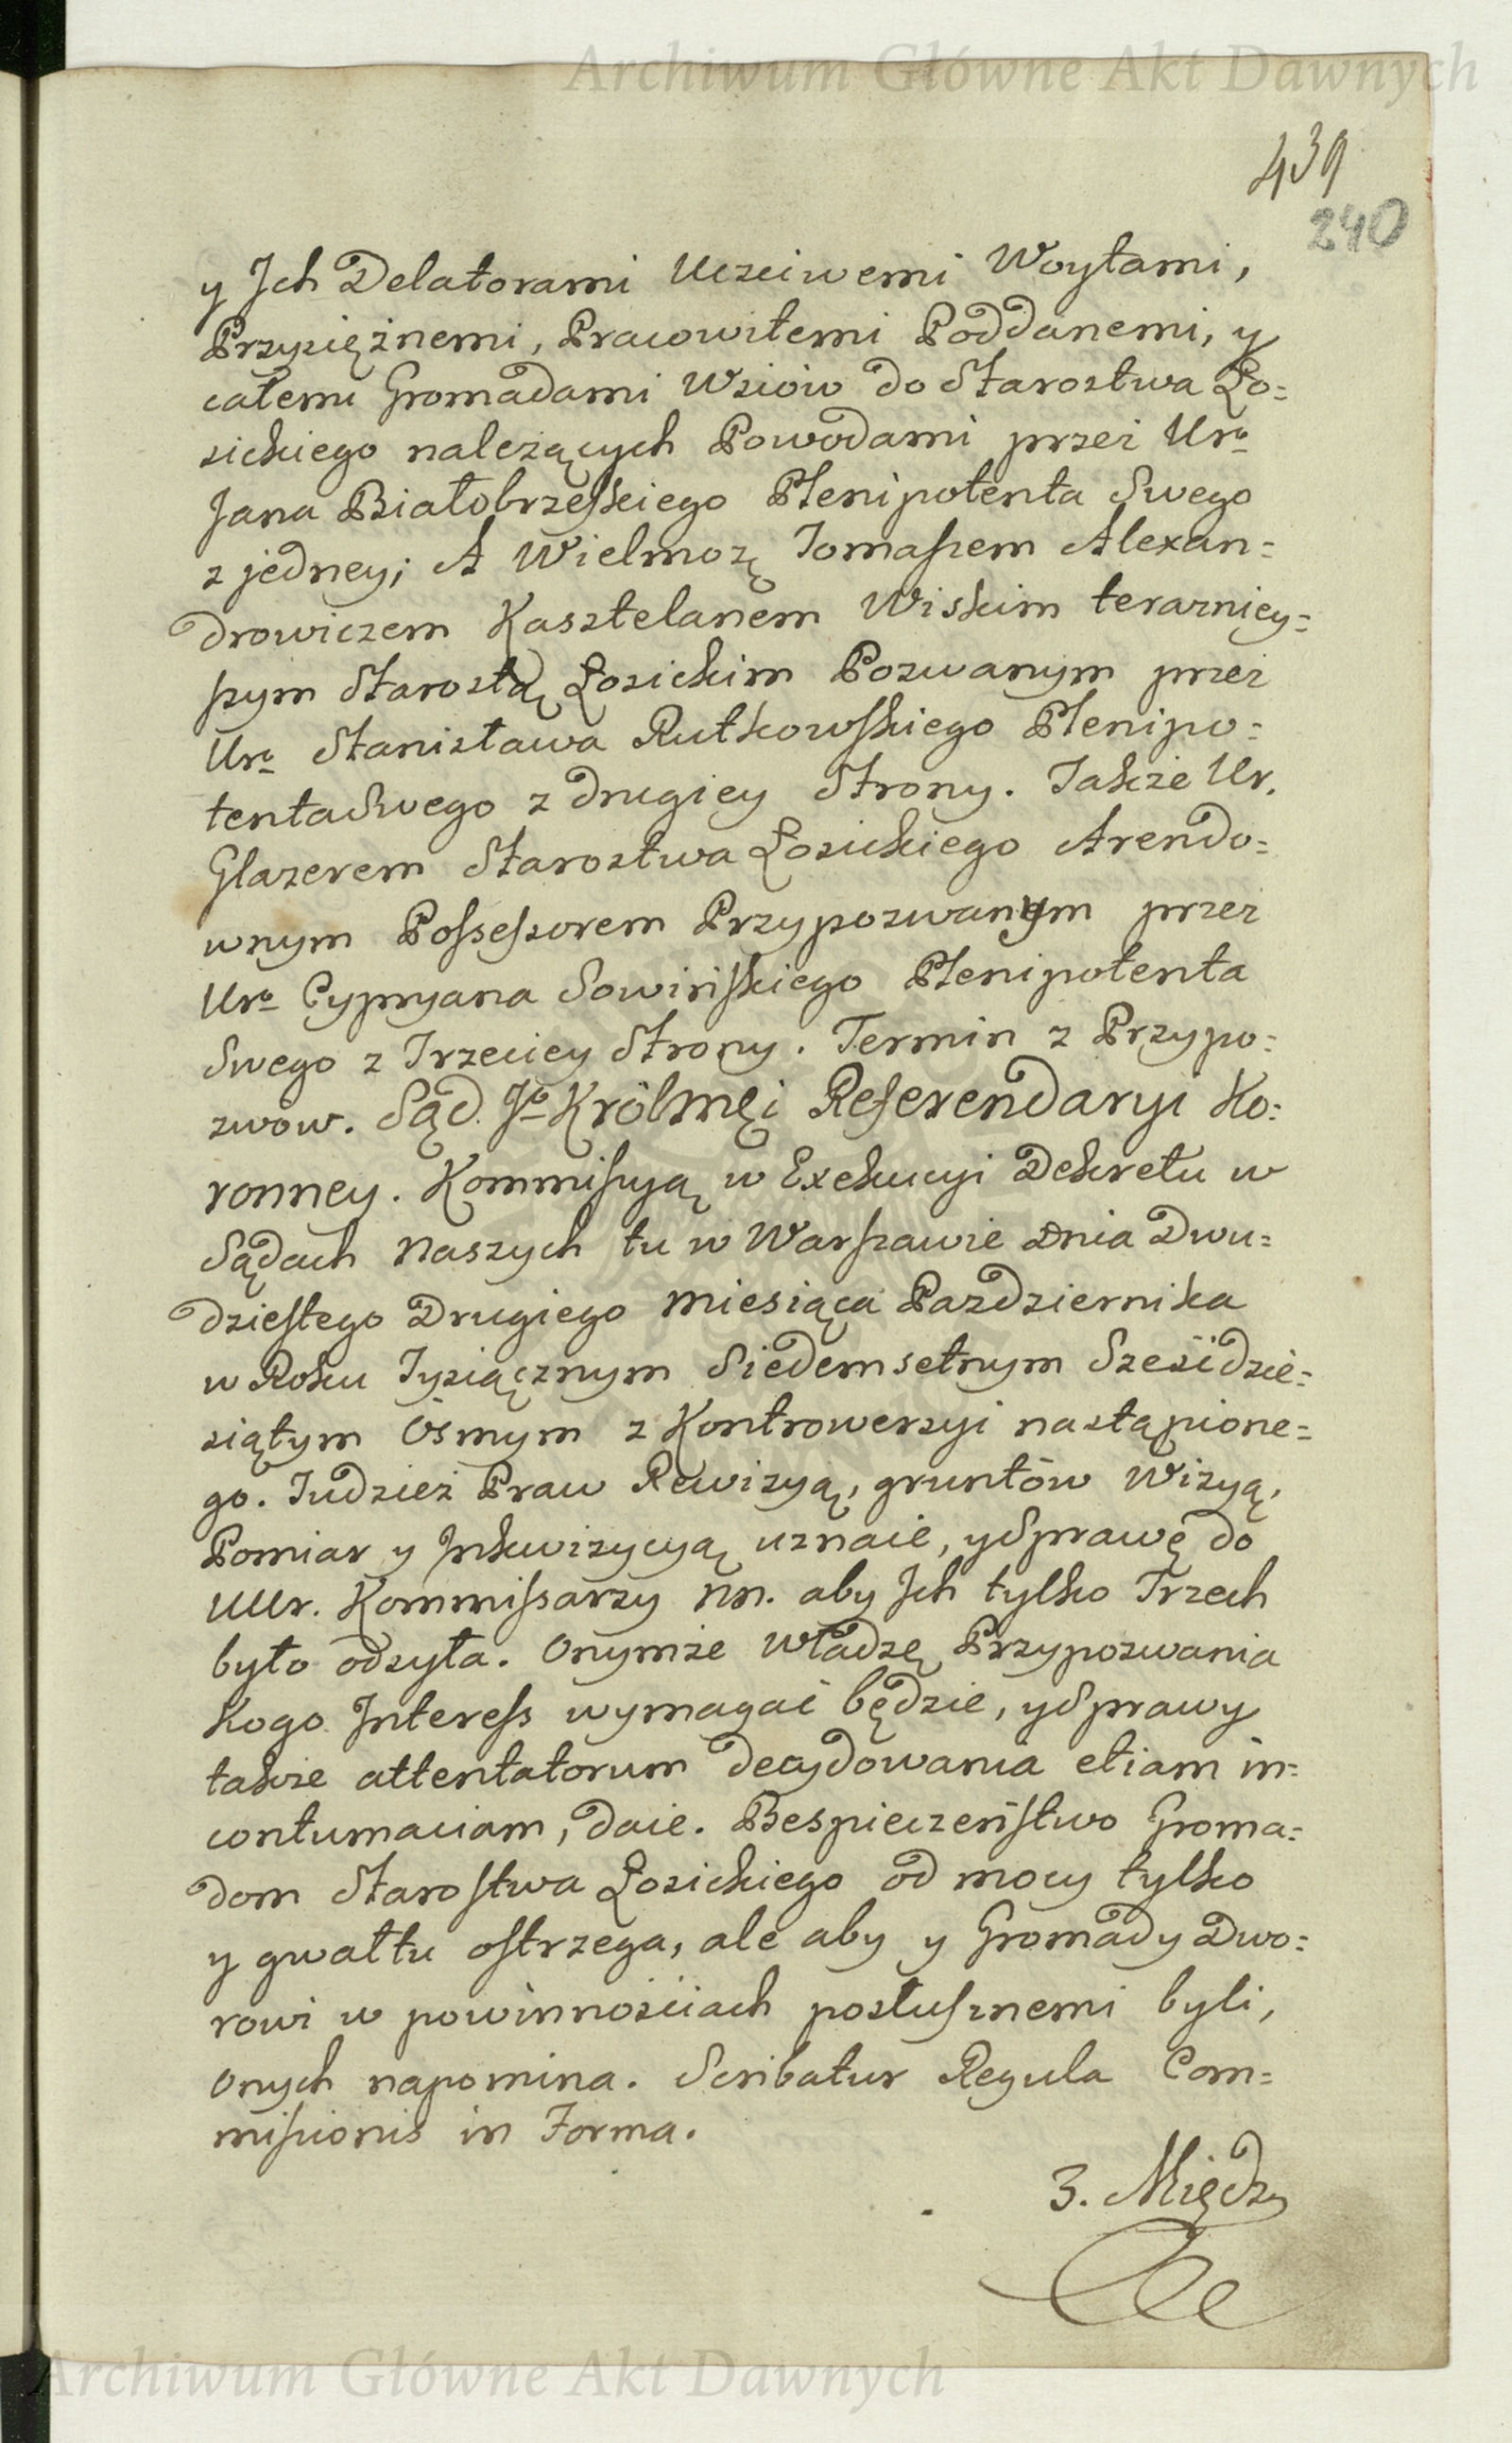 Archiwum Główne Akt Dawnych
439
240
y Jch Delatorami Uczciwemi Woytami,
Przysiężnemi, Pracowitemi Poddanemi, y
całemi Gromadami Wsiów do Starostwa Ło=
sickiego należących Powodami przez Uro
Jana Białobrzeskiego Plenipotenta Swego
z jedney; A Wielmożę Tomaszem Alexan=
drowiczem Kasztelanem Wiskim terazniey=
szym Starostą Łosickim Pozwanym przez
Uro Stanisława Rutkowskiego Plenipo=
tenta Swego z drugiey Strony. Także Ur.
Glazerem Starostwa Łosickiego Arendo=
wnym Possessorem Przypozwanym przez
Uro Cypryana Sowińskiego Plenipotenta
Swego z Trzeciey Strony. Termin z Przypo=
zwów. Sąd Jo Królmęi Referendaryi Ko=
ronney. Kommissyą w Exekucyi Dekretu w
Sądach Naszych tu w Warszawie Dnia Dwu=
dziestego Drugiego Miesiąca Pazdziernika
w Roku Tysiącznym Siedemsetnym Sześćdzie=
siątym Osmym z Kontrowersyi nastąpione=
go. Tudzież Praw Rewizyą, gruntów Wizyą,
Pomiar y Jnkwizycyą uznaie, y Sprawę do
UUr. Kommissarzy NN. aby Jch tylko Trzech
było odsyła. Onymże Władzę Przypozwania
Kogo Jnteress wymagać będzie, y Sprawy
także attentatorum decydowania etiam in=
contumaciam, daie. Bespieczeństwo Groma=
dom Starostwa Łosickiego od mocy tylko
y gwałtu ostrzega, ale aby y Gromady Dwo=
rowi w powinnościach posłusznemi byli,
Onych napomina. Scribatur Regula Com=
missionis in Forma.
3. Między
Archiwum Główne Akt Dawnych